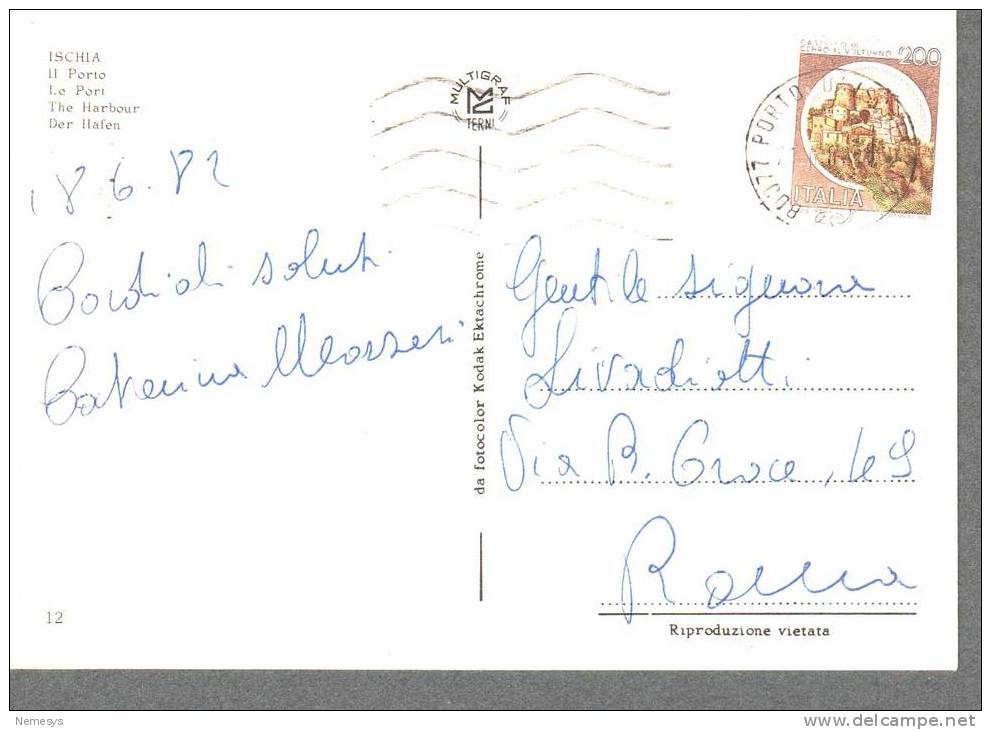 ISCHIA
Il Porto
Le Port
The Harbour
Der Hafen
18.6.82
Cordiali saluti
Caterina
12
MULTIGRAF
TERNI
da fotocolor Kodak Ektachrome
CASTELLO DI
CERRO AL VOLTURNO
200
ITALIA
80077 PORTO
Gentile Signora
Livadiotti
Via B. Croce, 49
Roma
Riproduzione vietata
Nemesys
delcampe.net